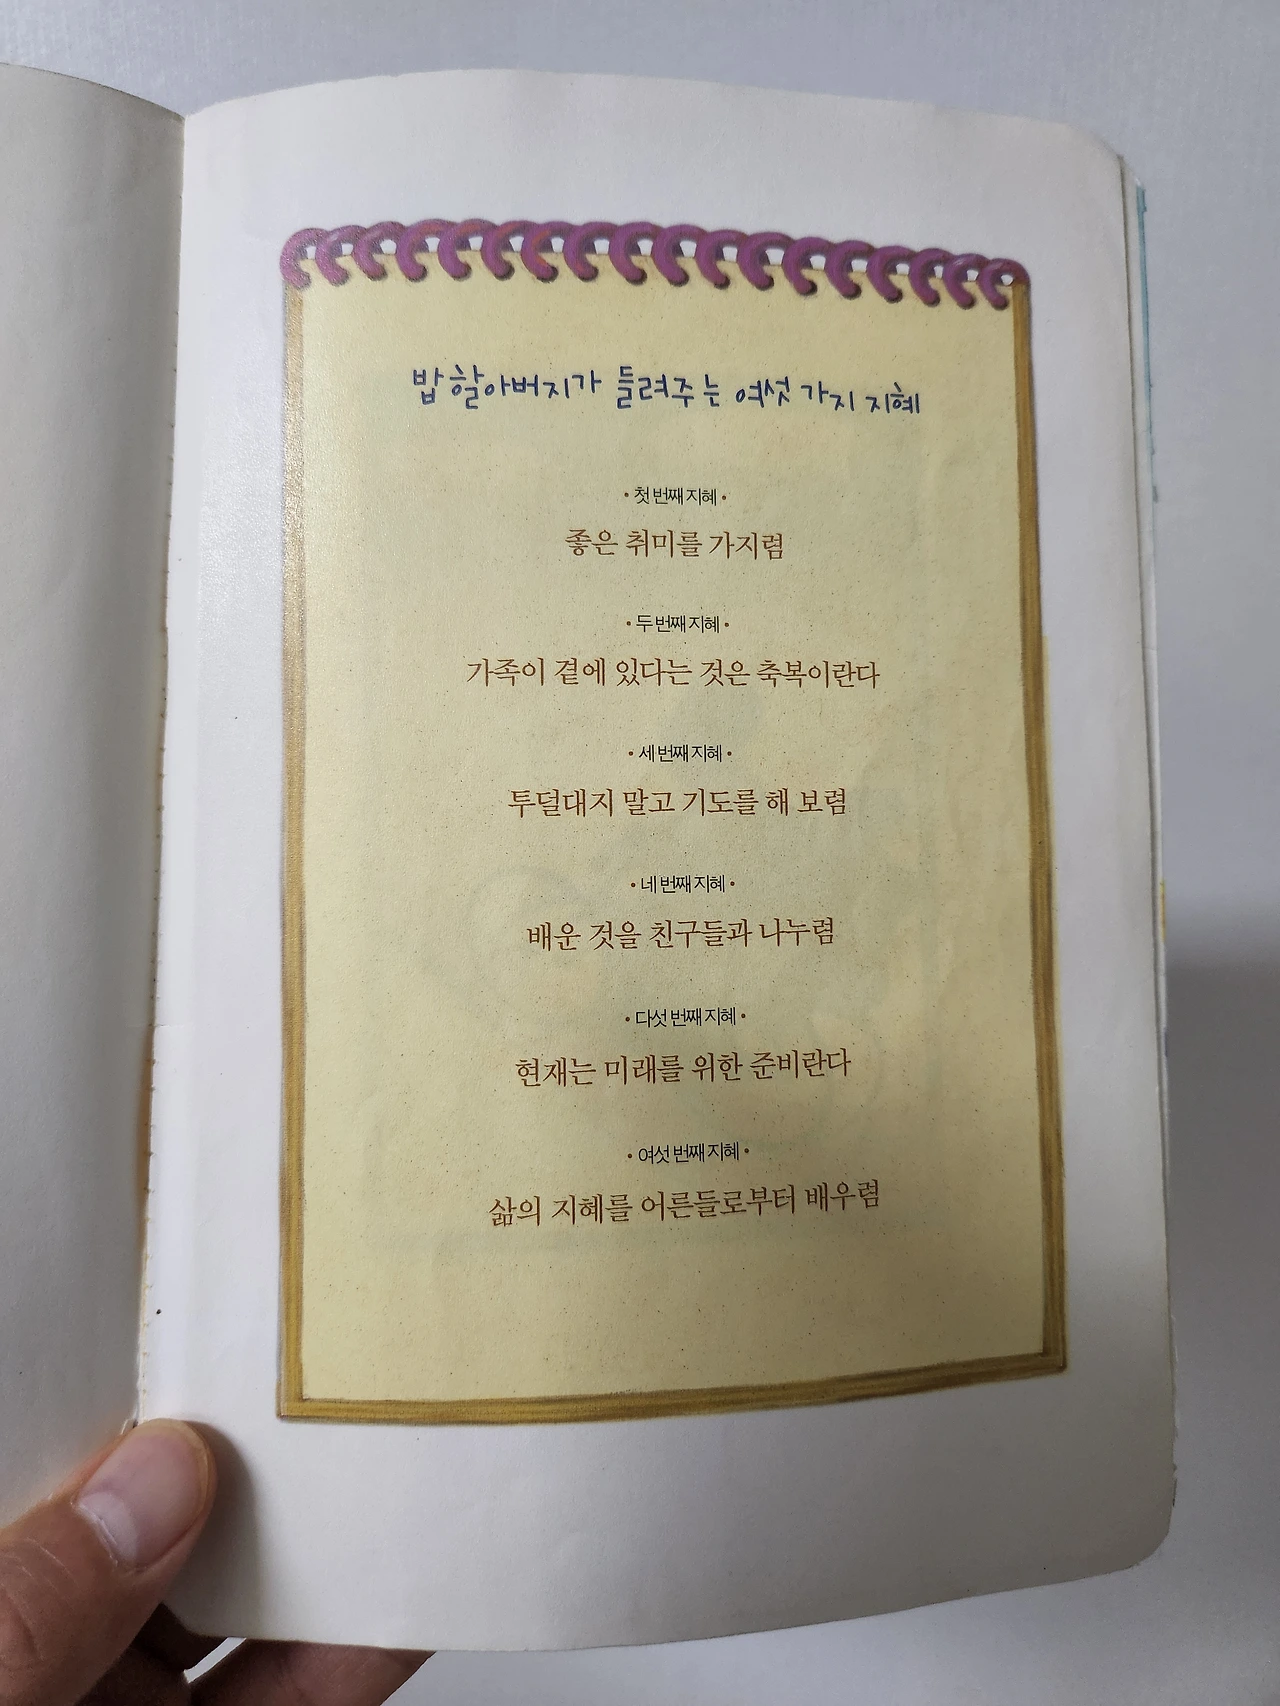 밥 할아버지가 들려주는 여섯 가지 지혜
• 첫 번째 지혜 •
좋은 취미를 가지렴
• 두 번째 지혜 •
가족이 곁에 있다는 것은 축복이란다
• 세 번째 지혜 •
투덜대지 말고 기도를 해 보렴
• 네 번째 지혜 •
배운 것을 친구들과 나누렴
• 다섯 번째 지혜 •
현재는 미래를 위한 준비란다
• 여섯 번째 지혜 •
삶의 지혜를 어른들로부터 배우렴